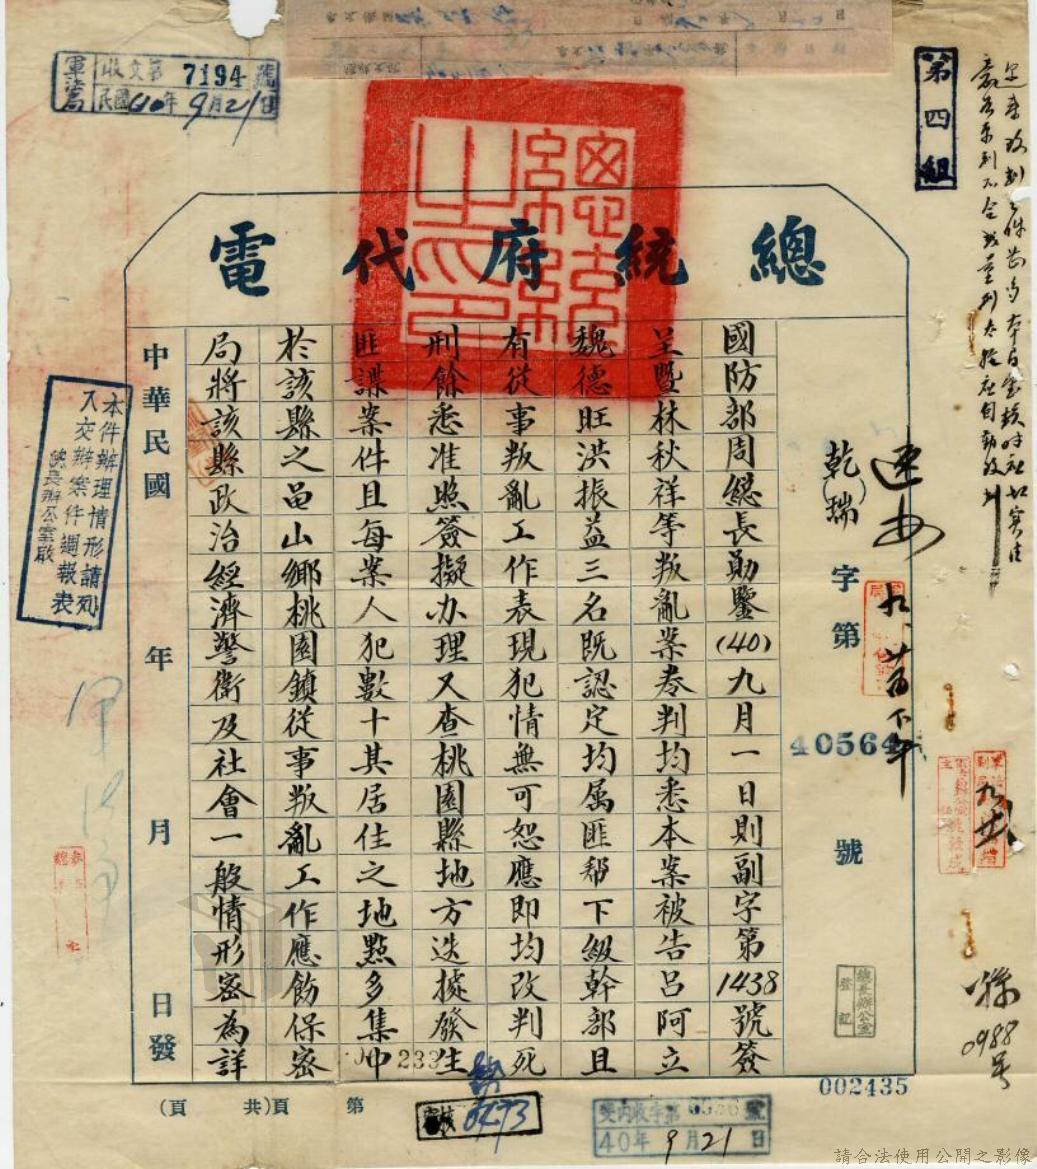 軍法局
收文第7194號
民國40年9月21日
第四組
總統府代電
總統之印
速辦
乾(瑞)字第40564號
國防部周總長勛鑒(40)九月一日則副字第1438號簽
呈暨林秋祥等叛亂案卷判均悉本案被告呂阿立
魏德旺洪振益三名既認定均属匪帮下級幹部且
有從事叛亂工作表現犯情無可恕應即均改判死
刑餘悉准照簽擬办理又查桃園縣地方迭據發生
匪諜案件且每案人犯數十其居住之地點多集中
於該縣之龜山鄉桃園鎮從事叛亂工作應飭保密
局將該縣政治經濟警衛及社會一般情形密為詳
中華民國 年 月 日發
本件辦理情形請列
入交辦案件週報表
總長辦公室啟
總長辦公室
登記
0988号
002435
233
第 頁(共 頁)
0473
40年9月21日
請合法使用公開之影像